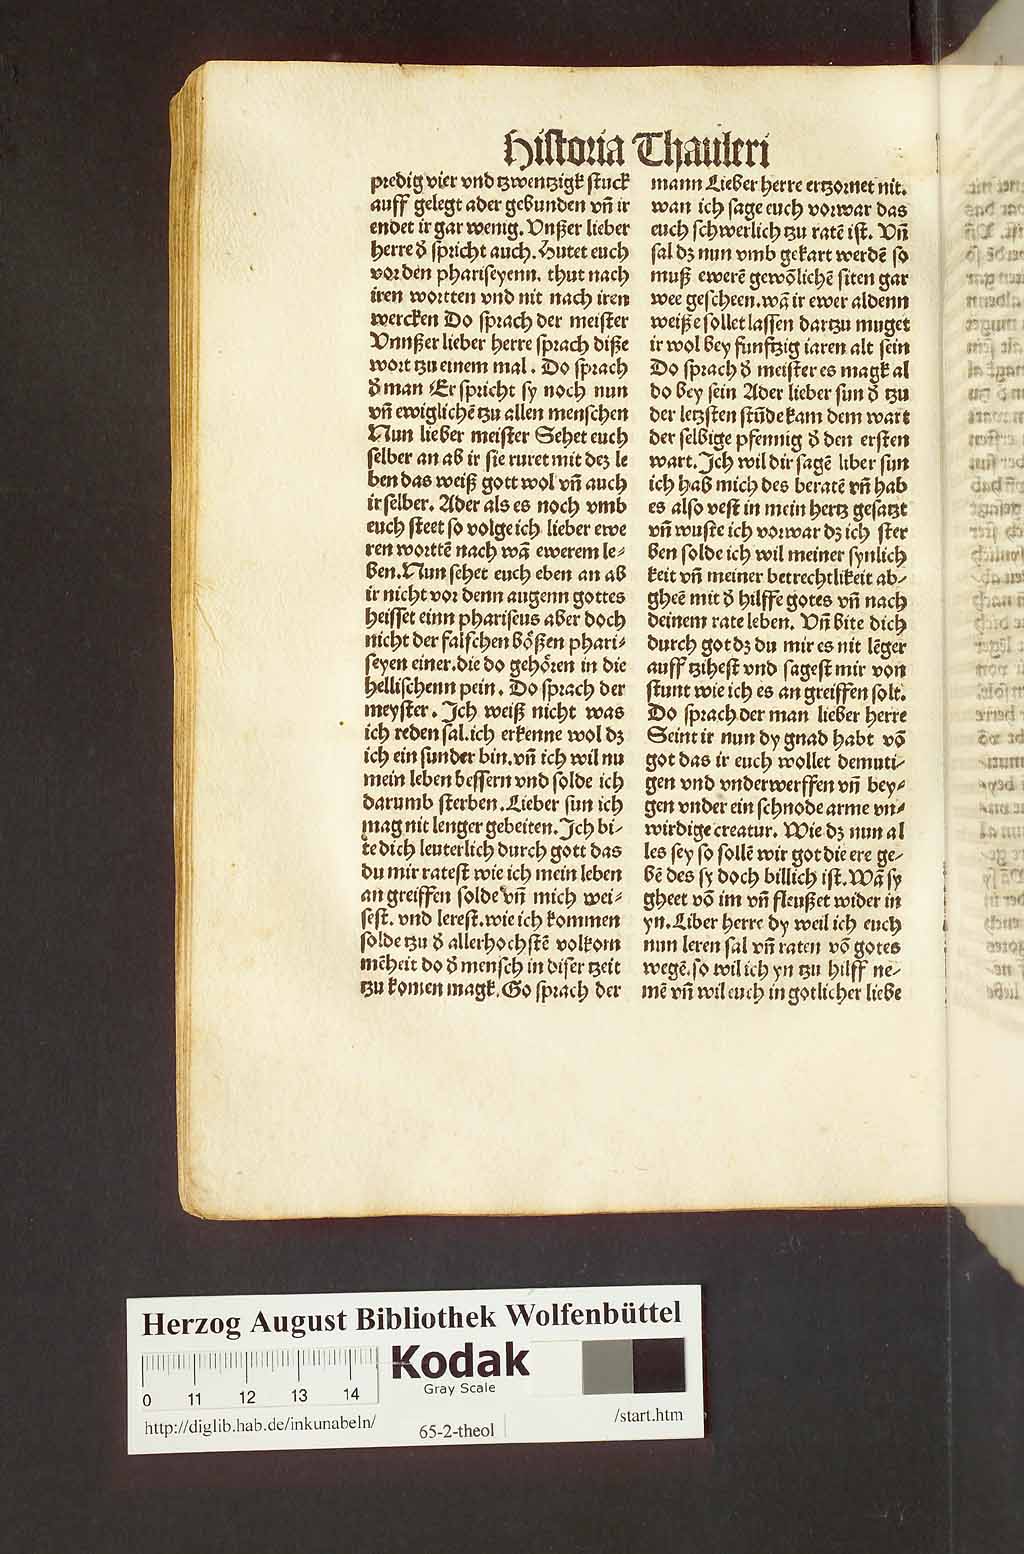 Historia Thauleri
predig vier vnd tzwentzigk stuck
auff gelegt ader gebunden vn̄ ir
endet ir gar wenig. Vnßer lieber
herre d̕ spricht auch. Hutet euch
vor den phariseyenn. thut nach
iren wortten vnd nit nach iren
wercken Do sprach der meister
Vnnßer lieber herre sprach diße
wort tzu einem mal. Do sprach
d̕ man Er spricht sy noch nun
vn̄ ewiglichē tzu allen menschen
Nun lieber meister Sehet euch
selber an ab ir sie ruret mit deʒ le
ben das weiß gott wol vn̄ auch
ir selber. Ader als es noch vmb
euch steet so volge ich lieber ewe
ren worttē nach wā ewerem le-
ben. Nun sehet euch eben an ab
ir nicht vor denn augenn gottes
heisset einn phariseus aber doch
nicht der falschen bößen phari-
seyen einer. die do gehören in die
hellischenn pein. Do sprach der
meyster. Ich weiß nicht was
ich reden sal. ich erkenne wol dʒ
ich ein sunder bin. vn̄ ich wil nu
mein leben bessern vnd solde ich
darumb sterben. Lieber sun ich
mag nit lenger gebeiten. Ich bi-
te dich leuterlich durch gott das
du mir ratest wie ich mein leben
an greiffen solde vn̄ mich wei-
sest. vnd lerest. wie ich kommen
solde tzu d̕ allerhochstē volkom
mēheit do d̕ mensch in diser tzeit
tzu komen magk. So sprach der
mann Lieber herre ertzornet nit.
wan ich sage euch vorwar das
euch schwerlich tzu ratē ist. Vn̄
sal dʒ nun vmb gekart werdē so
muß ewerē gewōlichē siten gar
wee gescheen. wā ir ewer aldenn
weiße sollet lassen dartzu muget
ir wol bey funftzig iaren alt sein
Do sprach d̕ meister es magk al
do bey sein Ader lieber sun d̕ tzu
der letzsten stūde kam dem wart
der selbige pfennig d̕ den ersten
wart. Ich wil dir sagē liber sun
ich hab mich des beratē vn̄ hab
es also vest in mein hertz gesatzt
vn̄ wuste ich vorwar dʒ ich ster
ben solde ich wil meiner synlich
keit vn̄ meiner betrechtlikeit ab-
gheē mit d̕ hilffe gotes vn̄ nach
deinem rate leben. Vn̄ bite dich
durch got dʒ du mir es nit lēger
auff tzihest vnd sagest mir von
stunt wie ich es an greiffen solt.
Do sprach der man lieber herre
Seint ir nun dy gnad habt vō
got das ir euch wollet demuti-
gen vnd vnderwerffen vn̄ bey-
gen vnder ein schnode arme vn-
wirdige creatur. Wie dʒ nun al
les sey so sollē wir got die ere ge-
bē des sy doch billich ist. Wā sy
gheet vō im vn̄ fleußet wider in
yn. Liber herre dy weil ich euch
nun leren sal vn̄ raten vō gotes
wegē. so wil ich yn tzu hilff ne-
mē vn̄ wil euch in gotlicher liebe
Herzog August Bibliothek Wolfenbüttel
Kodak
Gray Scale
0 11 12 13 14
http://diglib.hab.de/inkunabeln/ 65-2-theol /start.htm